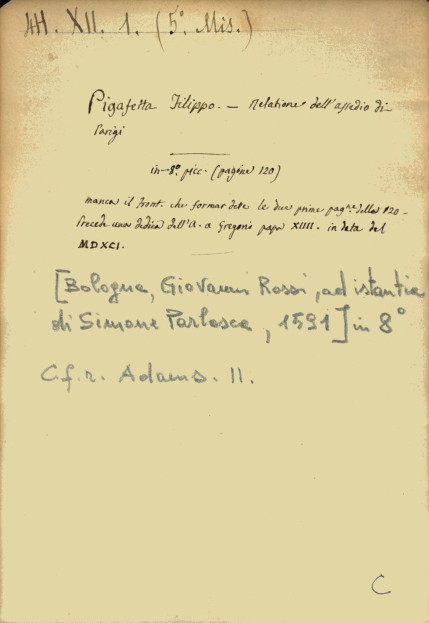 4H. XII. 1. (5° Mis.)
Pigafetta Filippo. — Relatione dell'assedio di
Parigi
in-8° picc. (pagine 120)
manca il front. che formar deve le due prime pagne delle 120-
Precede una dedica dell'A. a Gregorio papa XIIII. in data del
MDXCI.
[Bologna, Giovanni Rossi, ad istantia
di Simone Parlasca, 1591] in 8°
C.f.r. Adams. II.
C